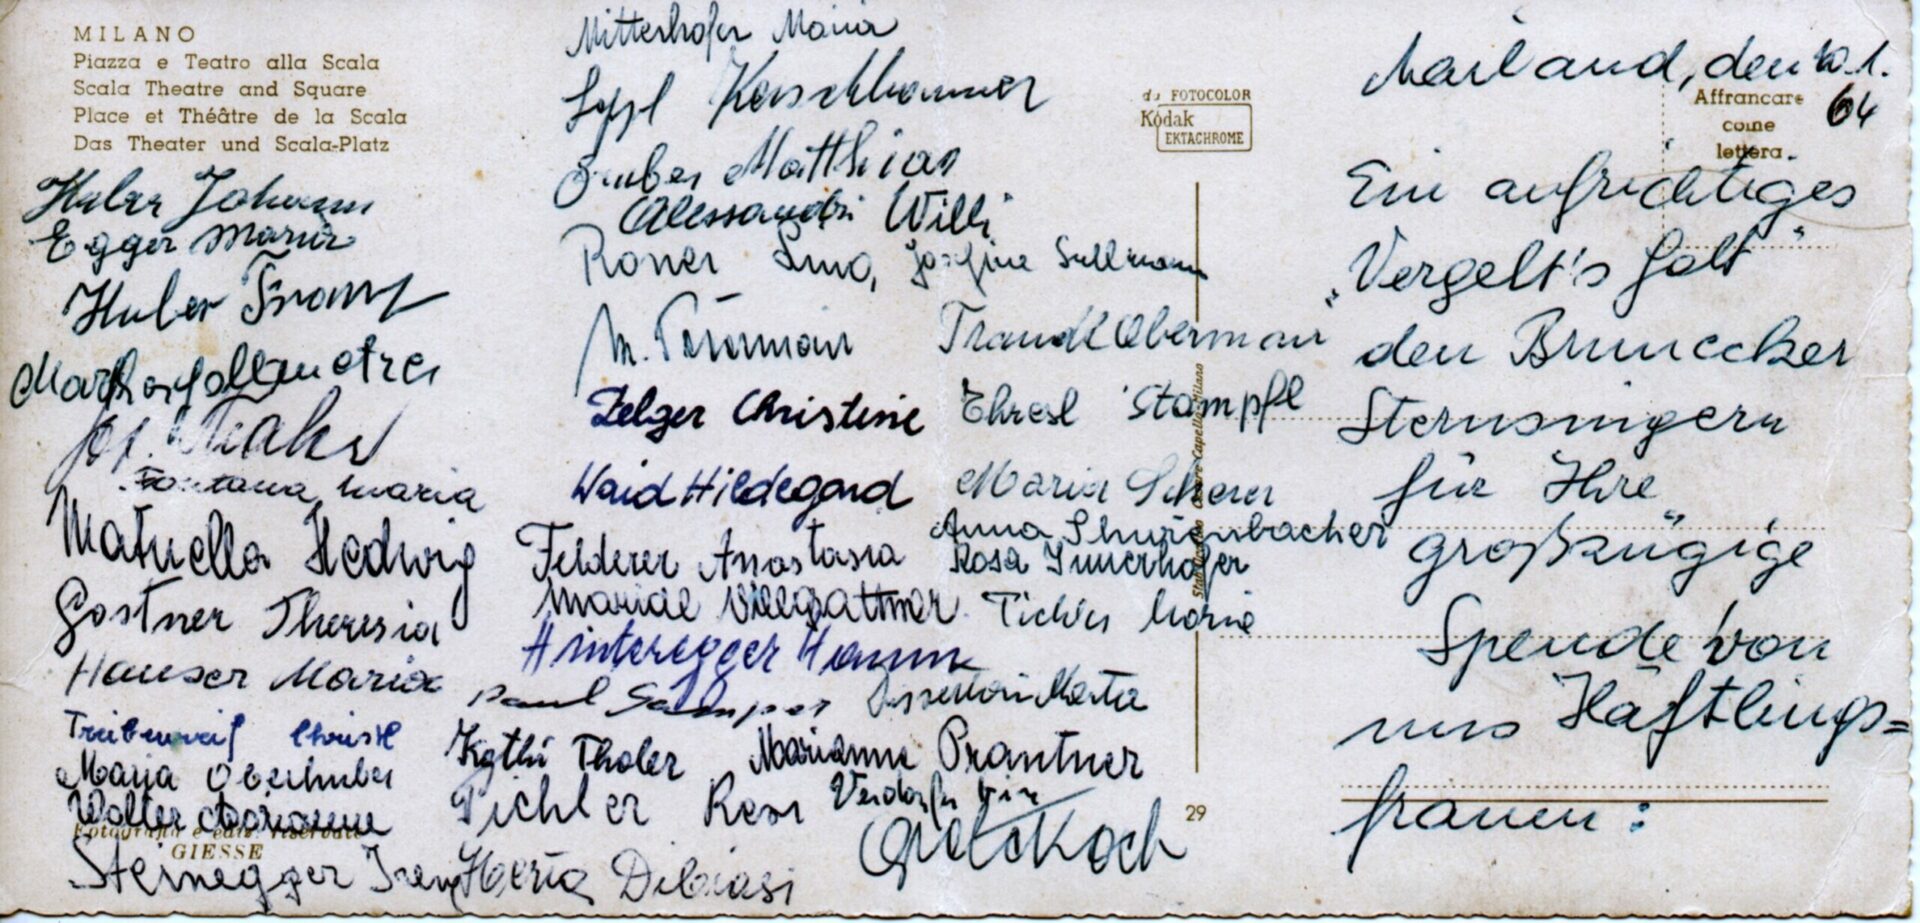 MILANO
Piazza e Teatro alla Scala
Scala Theatre and Square
Place et Théâtre de la Scala
Das Theater und Scala-Platz
Huber Johann
Egger Maria
Huber Franz
Fontana Maria
Matuella Hedwig
Gostner Theresia
Hauser Maria
Christl
Maria Oberhuber
Walter Marianne
Fotografia e ediz. riservata
GIESSE
Steinegger Irene
Mitterhofer Maria
Sepl Kerschbaumer
Gruber Matthias
Alessandri Willi
Roner Luno, Josefine Sullmann
M. Traudl Obermair
Zelger Christine Thresl Stampfl
Waid Hildegard Maria Scherer
Anna Thurenbacher
Felderer Anastasia Rosa Innerhofer
Maridl Villgrattner Pichler Marie
Hinteregger Hanna
Paul Marta
Kathi Thaler Marianne Prantner
Pichler Resi
Gretl Koch
Maria Dibiasi
da FOTOCOLOR
Kodak
EKTACHROME
Stab. Cesare Capello - Milano
29
Affrancare
come
lettera
Mailand, den 10.1.
64
Ein aufrichtiges
"Vergelt's Gott"
den Brunecker
Sternsingern
für Ihre
großzügige
Spende von
uns Häftlings=
frauen: